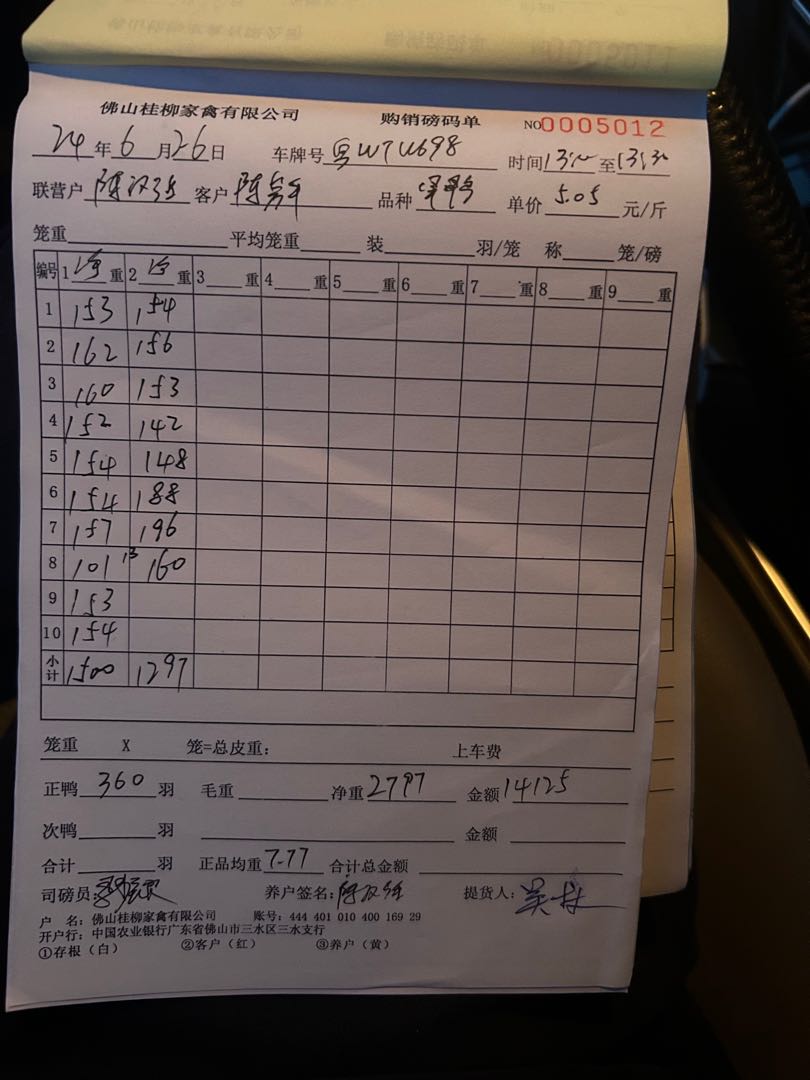 佛山桂柳家禽有限公司 购销磅码单 NO0005012
24年6月26日 车牌号 粤W7U698 时间13:10至13:30
联营户 陈汉强 客户 陈 品种 单价 5.05 元/斤
笼重 平均笼重 装 羽/笼 称 笼/磅
编号 1 净重 2 净重 3 重 4 重 5 重 6 重 7 重 8 重 9 重
1 153 154
2 162 156
3 160 153
4 152 142
5 154 148
6 154 188
7 157 196
8 101 13 160
9 153
10 154
小计 1500 1297
笼重 X 笼=总皮重: 上车费
正鸭 360 羽 毛重 净重 2797 金额 14125
次鸭 羽 金额
合计 羽 正品均重 7.77 合计总金额
司磅员: 养户签名: 陈汉强 提货人: 吴
户 名: 佛山桂柳家禽有限公司 账号: 444 401 010 400 169 29
开户行: 中国农业银行广东省佛山市三水区三水支行
①存根（白） ②客户（红） ③养户（黄）